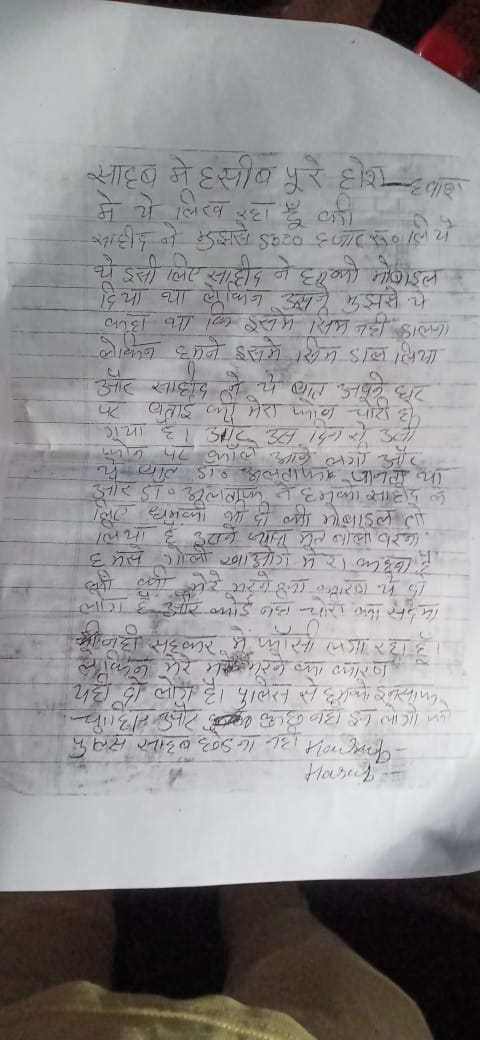 साहब मे हसीब पूरे होश - हवाश
मे ये लिख रहा हूँ की
साहीद ने मुझसे 5000 हजार रू० लिये
थे इसी लिए साहीद ने हमको मोबाइल
दिया था लेकिन उसने मुझसे ये
कहा था कि इसमे सिम नही डालना
लेकिन हमने इसमे सिम डाल लिया
और साहीद ने ये बात अपने घर
पर बताई की मेरा फोन चोरी हो
गया है। और उस दिन से उसी
फोन पर कॉल आने लगी और
ये बात डा० अलताफ जानता था
और डा० अलताफ ने हमको साहीद के
लिए धमकी भी दी की मोबाइल तो
लिया है उसने ज्यादा मत बोलो वरना
हमसे गोली खाओगे मेरा कहना है
की मेरे मरने का कारण ये दो
लोग है और कोई नही चोरी का सदमा
नही सहकर मे फाँसी लगा रहा हूँ।
लेकिन मेरे मरने का कारण
यही दो लोग है। पुलिस से हमको इनसाफ
चाहिए और कुछ नही इन लोगो को
पुलिस साहब छोडना नही